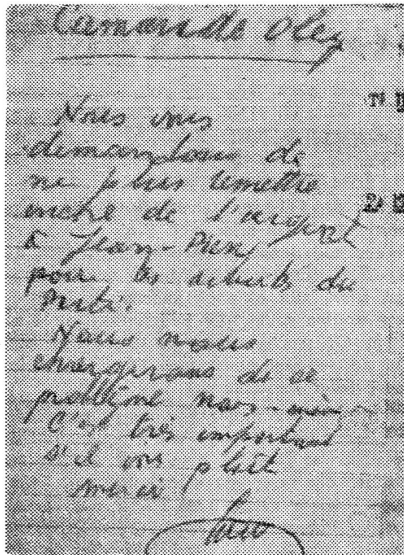 Camarade Oleg
Nous vous
demandons de
ne plus remettre
de l'argent
à Jean-
pour les du
Parti.
Nous nous
chargerons de ce
problème nous-
C'est très important
s'il vous plaît
merci